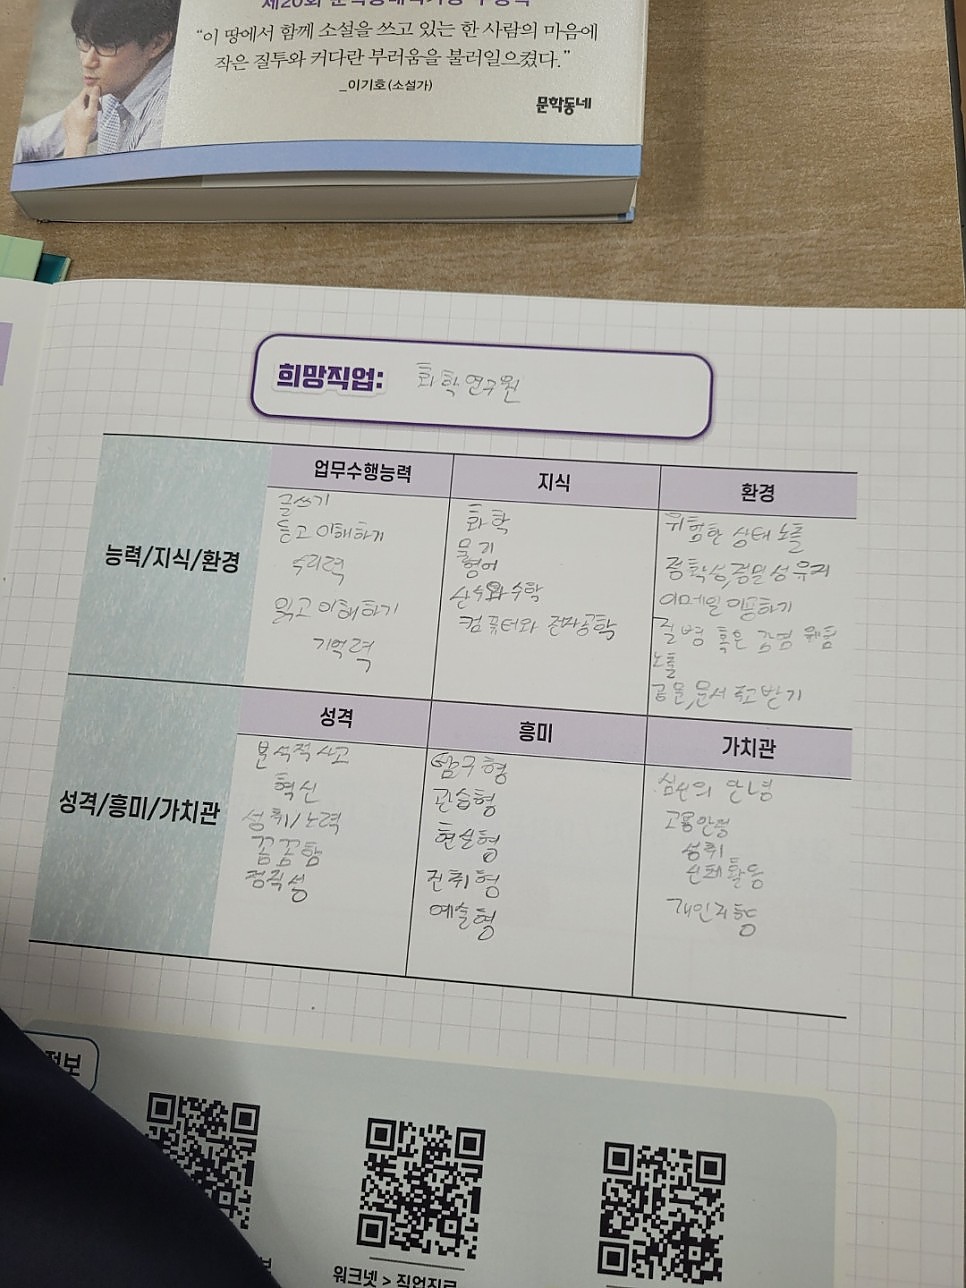 “이 땅에서 함께 소설을 쓰고 있는 한 사람의 마음에
작은 질투와 커다란 부러움을 불러일으켰다.”
_이기호(소설가)
문학동네
희망직업: 화학연구원
업무수행능력
지식
환경
능력/지식/환경
글쓰기
듣고 이해하기
수리력
읽고 이해하기
기억력
화학
물리
영어
산수와 수학
컴퓨터와 전자공학
위험한 상태 노출
정확성,정밀성 유지
이메일 이용하기
질병 혹은 감염 위험
노출
공문,문서 주고받기
성격
흥미
가치관
성격/흥미/가치관
분석적 사고
혁신
성취/노력
꼼꼼함
정직성
탐구형
관습형
현실형
진취형
예술형
심신의 안녕
고용안정
성취
신체활동
개인지향
정보
워크넷 > 직업진로